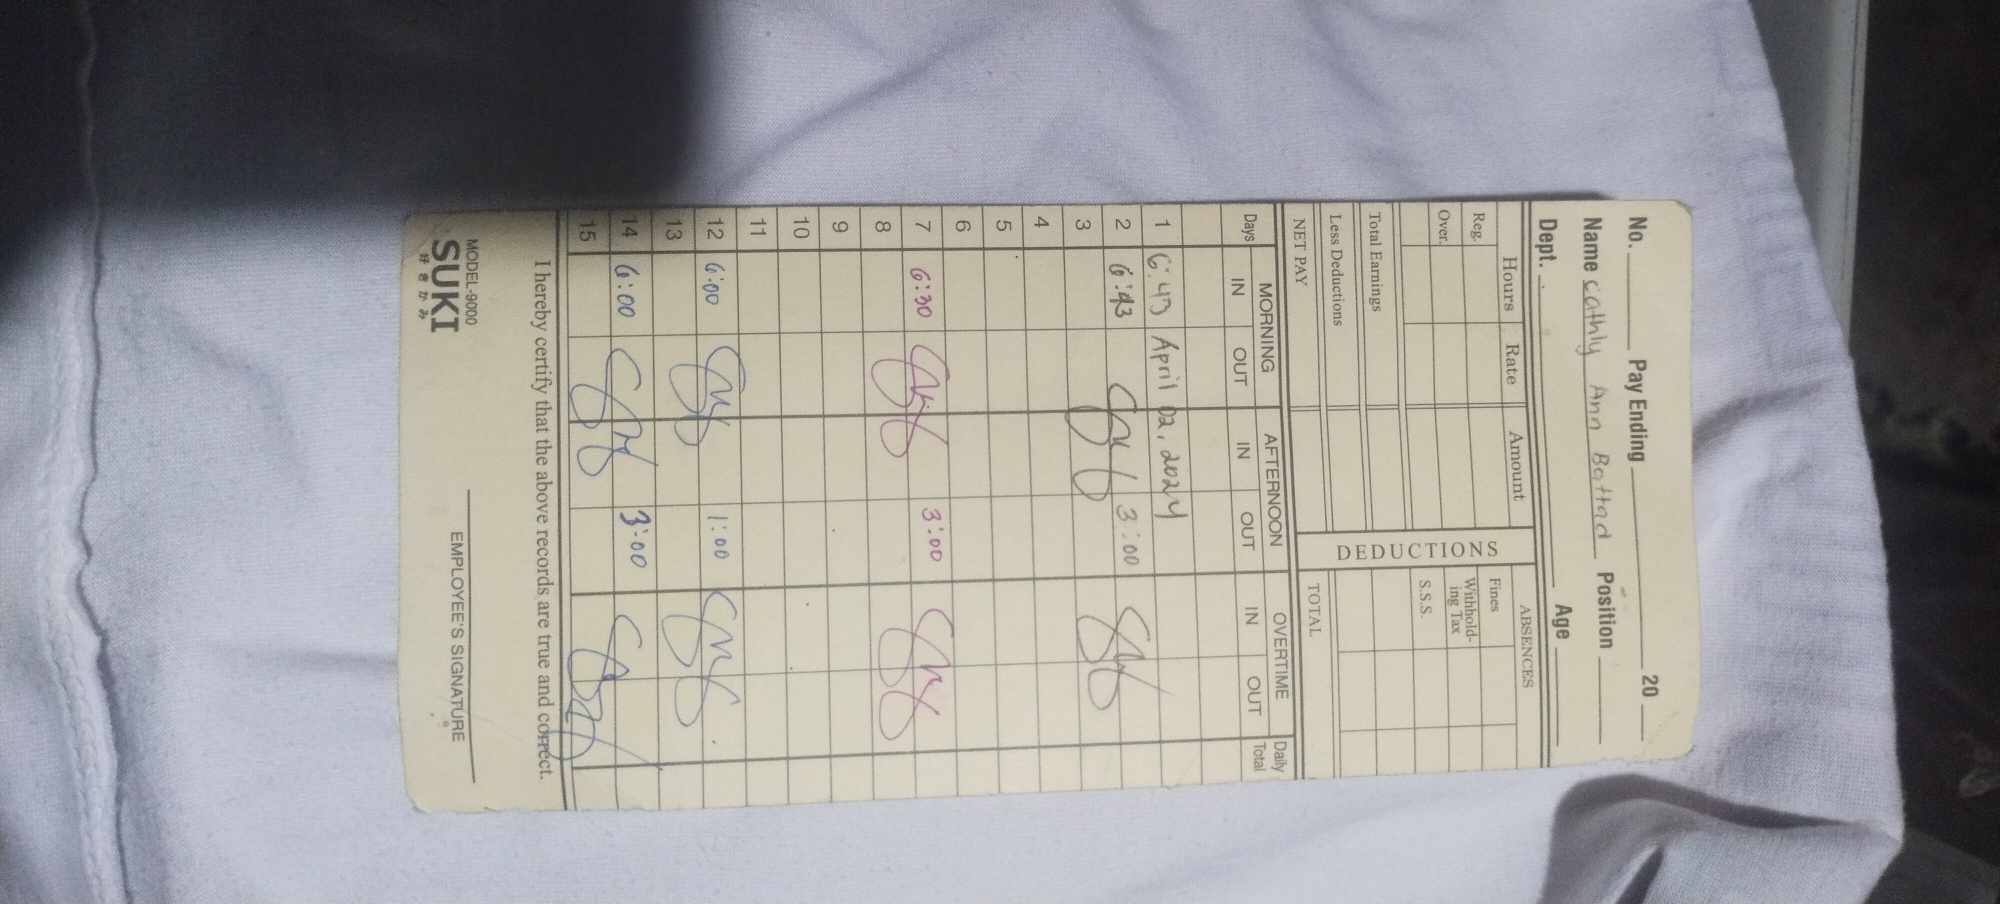 No. Pay Ending 20
Name cathly Ann Battad Position
Dept. Age
Hours Rate Amount
Reg.
Over.
Total Earnings
Less Deductions
NET PAY
DEDUCTIONS
ABSENCES
Fines
Withhold-
ing Tax
S.S.S.
TOTAL
Days MORNING AFTERNOON OVERTIME Daily
IN OUT IN OUT IN OUT Total
1 6:43 April 02, 2024
2 6:43 3:00
3
4
5
6
7 6:30 3:00
8
9
10
11
12 6:00 1:00
13
14 6:00 3:00
15
I hereby certify that the above records are true and correct.
MODEL-9000
SUKI
好きかみ
EMPLOYEE'S SIGNATURE